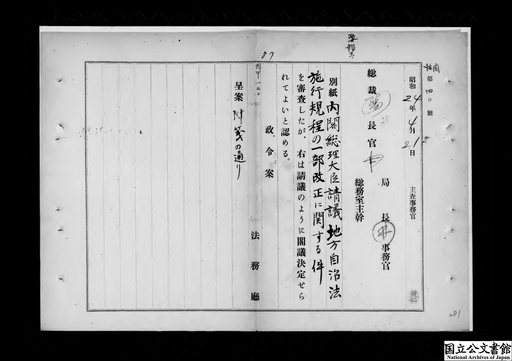 昭和24年4月21日
主査事務官
総裁
長官
局長
事務官
総務室主幹
別紙内閣総理大臣請議地方自治法
施行規程の一部改正に関する件
を審査したが、右は請議のように閣議決定せら
れてよいと認める。
政令案
呈案 附箋の通り
法務廳
87
281
国立公文書館
National Archives of Japan